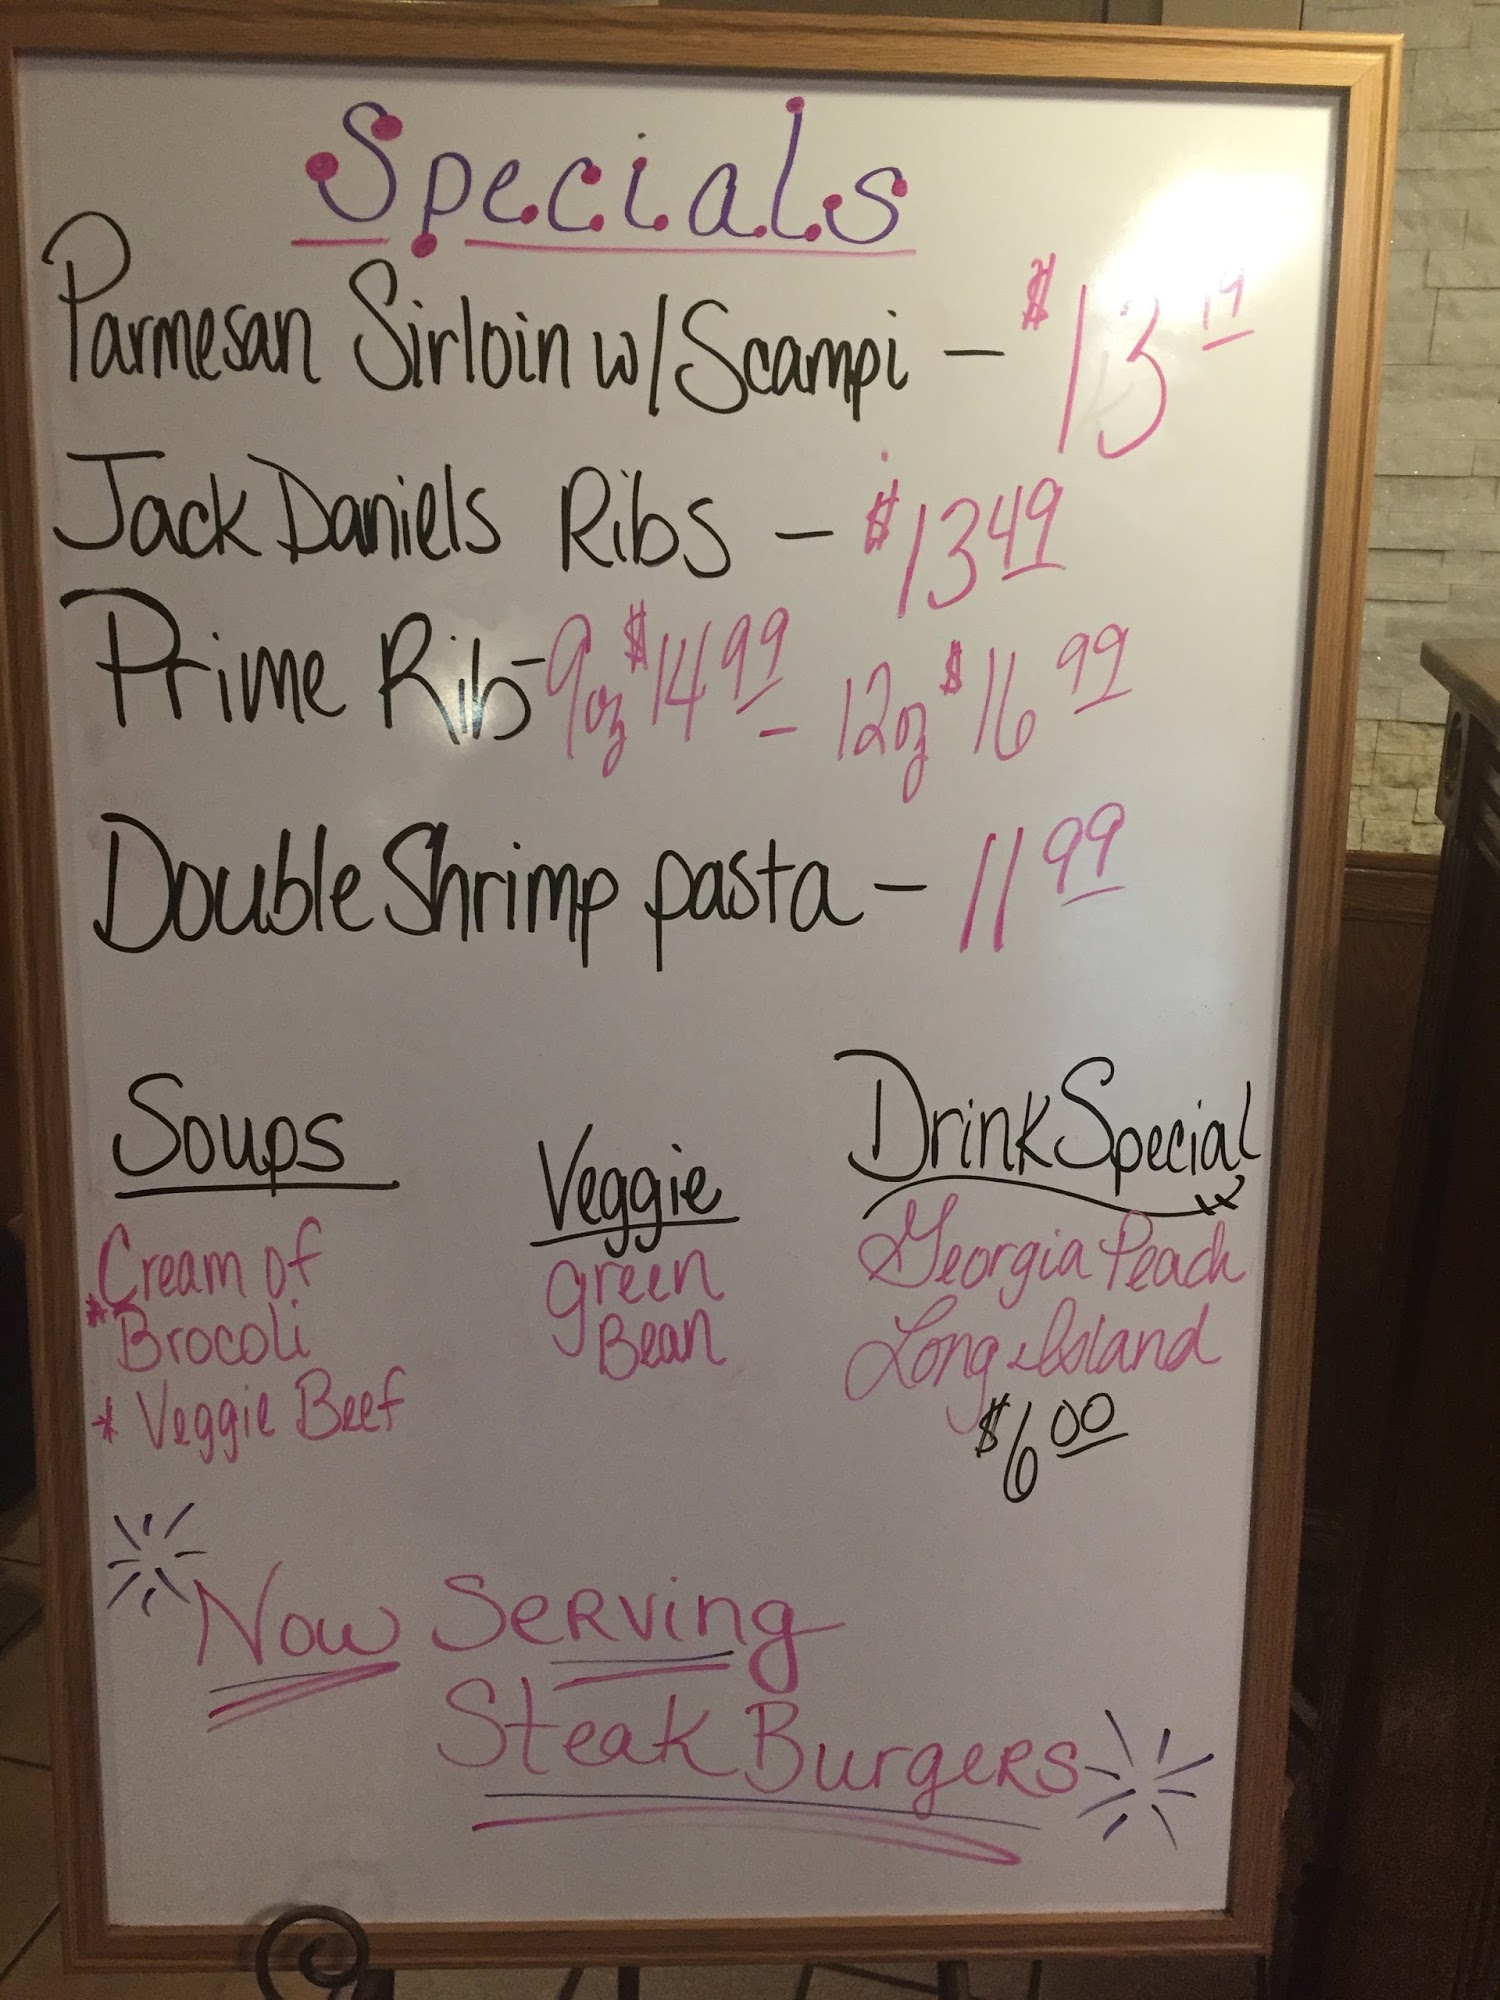 Specials
Parmesan Sirloin w/ Scampi - $13
Jack Daniels Ribs - $13 49
Prime Rib - 9oz $14 99 - 12oz $16 99
Double Shrimp pasta - 11 99
Soups
Veggie
Drink Special
* Cream of
Brocoli
* Veggie Beef
green
Bean
Georgia Peach
Long Island
$6 00
Now Serving
Steak Burgers